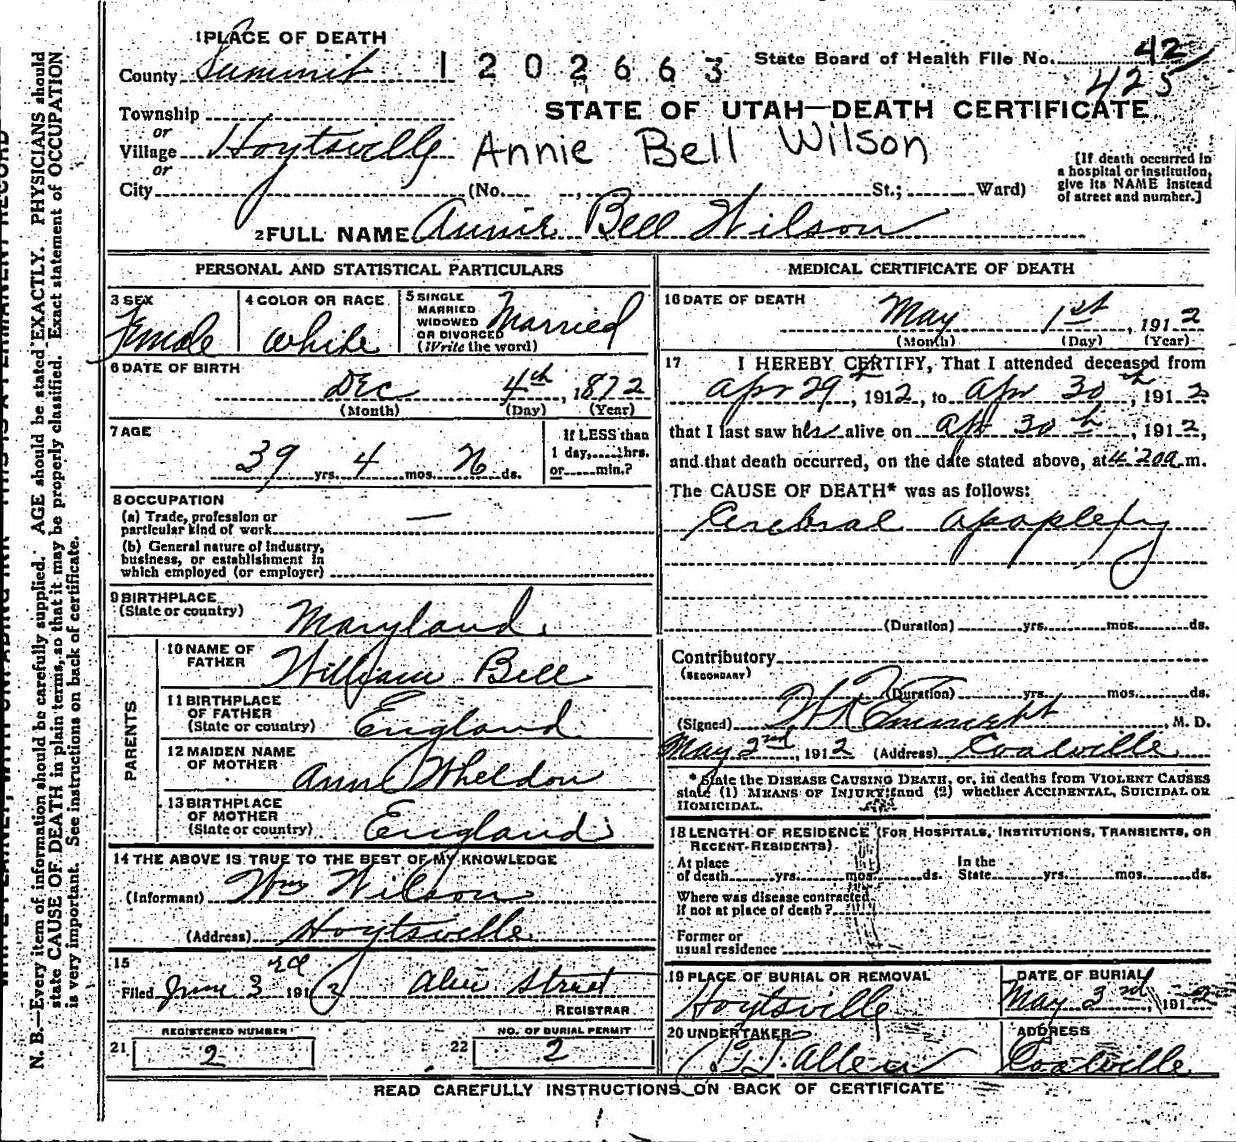 1 PLACE OF DEATH
County Summit 1202663 State Board of Health File No. 42
425
Township
STATE OF UTAH—DEATH CERTIFICATE
or
Village Hoytsville Annie Bell Wilson
or
City (No. , St.; Ward)
[If death occurred in a hospital or institution, give its NAME instead of street and number.]
2 FULL NAME Annie Bell Wilson
PERSONAL AND STATISTICAL PARTICULARS
3 SEX
Female
4 COLOR OR RACE
White
5 SINGLE
MARRIED
WIDOWED
OR DIVORCED
(Write the word)
Married
6 DATE OF BIRTH
Dec 4th, 1872
(Month) (Day) (Year)
7 AGE
39 yrs. 4 mos. 26 ds.
If LESS than
1 day, hrs.
or min.?
8 OCCUPATION
(a) Trade, profession or
particular kind of work —
(b) General nature of industry,
business, or establishment in
which employed (or employer)
9 BIRTHPLACE
(State or country) Maryland.
PARENTS
10 NAME OF
FATHER William Bell
11 BIRTHPLACE
OF FATHER
(State or country) England
12 MAIDEN NAME
OF MOTHER Ann Wheldon
13 BIRTHPLACE
OF MOTHER
(State or country) England
14 THE ABOVE IS TRUE TO THE BEST OF MY KNOWLEDGE
(Informant) Wm Wilson
(Address) Hoytsville
15
Filed June 3rd 191 2 Alvie Street
REGISTRAR
REGISTERED NUMBER
21 2
NO. OF BURIAL PERMIT
22 2
MEDICAL CERTIFICATE OF DEATH
16 DATE OF DEATH
May 1st, 1912
(Month) (Day) (Year)
17 I HEREBY CERTIFY, That I attended deceased from
Apr 29th, 1912, to Apr 30th, 1912
that I last saw her alive on Apr 30th, 1912,
and that death occurred, on the date stated above, at 4 20a m.
The CAUSE OF DEATH* was as follows:
Cerebral apoplexy
(Duration) yrs. mos. ds.
Contributory
(SECONDARY)
(Duration) yrs. mos. ds.
(Signed) , M. D.
May 2nd, 1912 (Address) Coalville
*State the DISEASE CAUSING DEATH, or, in deaths from VIOLENT CAUSES
state (1) MEANS OF INJURY; and (2) whether ACCIDENTAL, SUICIDAL OR
HOMICIDAL.
18 LENGTH OF RESIDENCE (FOR HOSPITALS, INSTITUTIONS, TRANSIENTS, OR
RECENT RESIDENTS)
At place In the
of death yrs. mos. ds. State yrs. mos. ds.
Where was disease contracted,
if not at place of death?
Former or
usual residence
19 PLACE OF BURIAL OR REMOVAL
Hoytsville
DATE OF BURIAL
May 3rd, 1912
20 UNDERTAKER
Allen
ADDRESS
Coalville
READ CAREFULLY INSTRUCTIONS ON BACK OF CERTIFICATE
N. B.—Every item of information should be carefully supplied. AGE should be stated EXACTLY. PHYSICIANS should
state CAUSE OF DEATH in plain terms, so that it may be properly classified. Exact statement of OCCUPATION
is very important. See instructions on back of certificate.